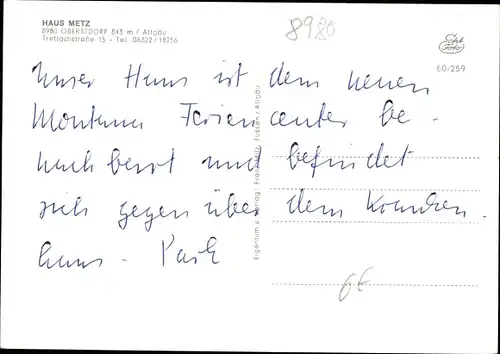 HAUS METZ
8980 OBERSTDORF 843 m / Allgäu
Trettachstraße 15 - Tel. 08322/18256
8980
Echt Foto
60/259
Unser Haus ist dem neuen
Montana Feriencenter be-
nachbart und befindet
sich gegenüber dem Kranken
haus - Park
Eigentum u. Verlag: Franz Milz, Füssen / Allgäu
6€